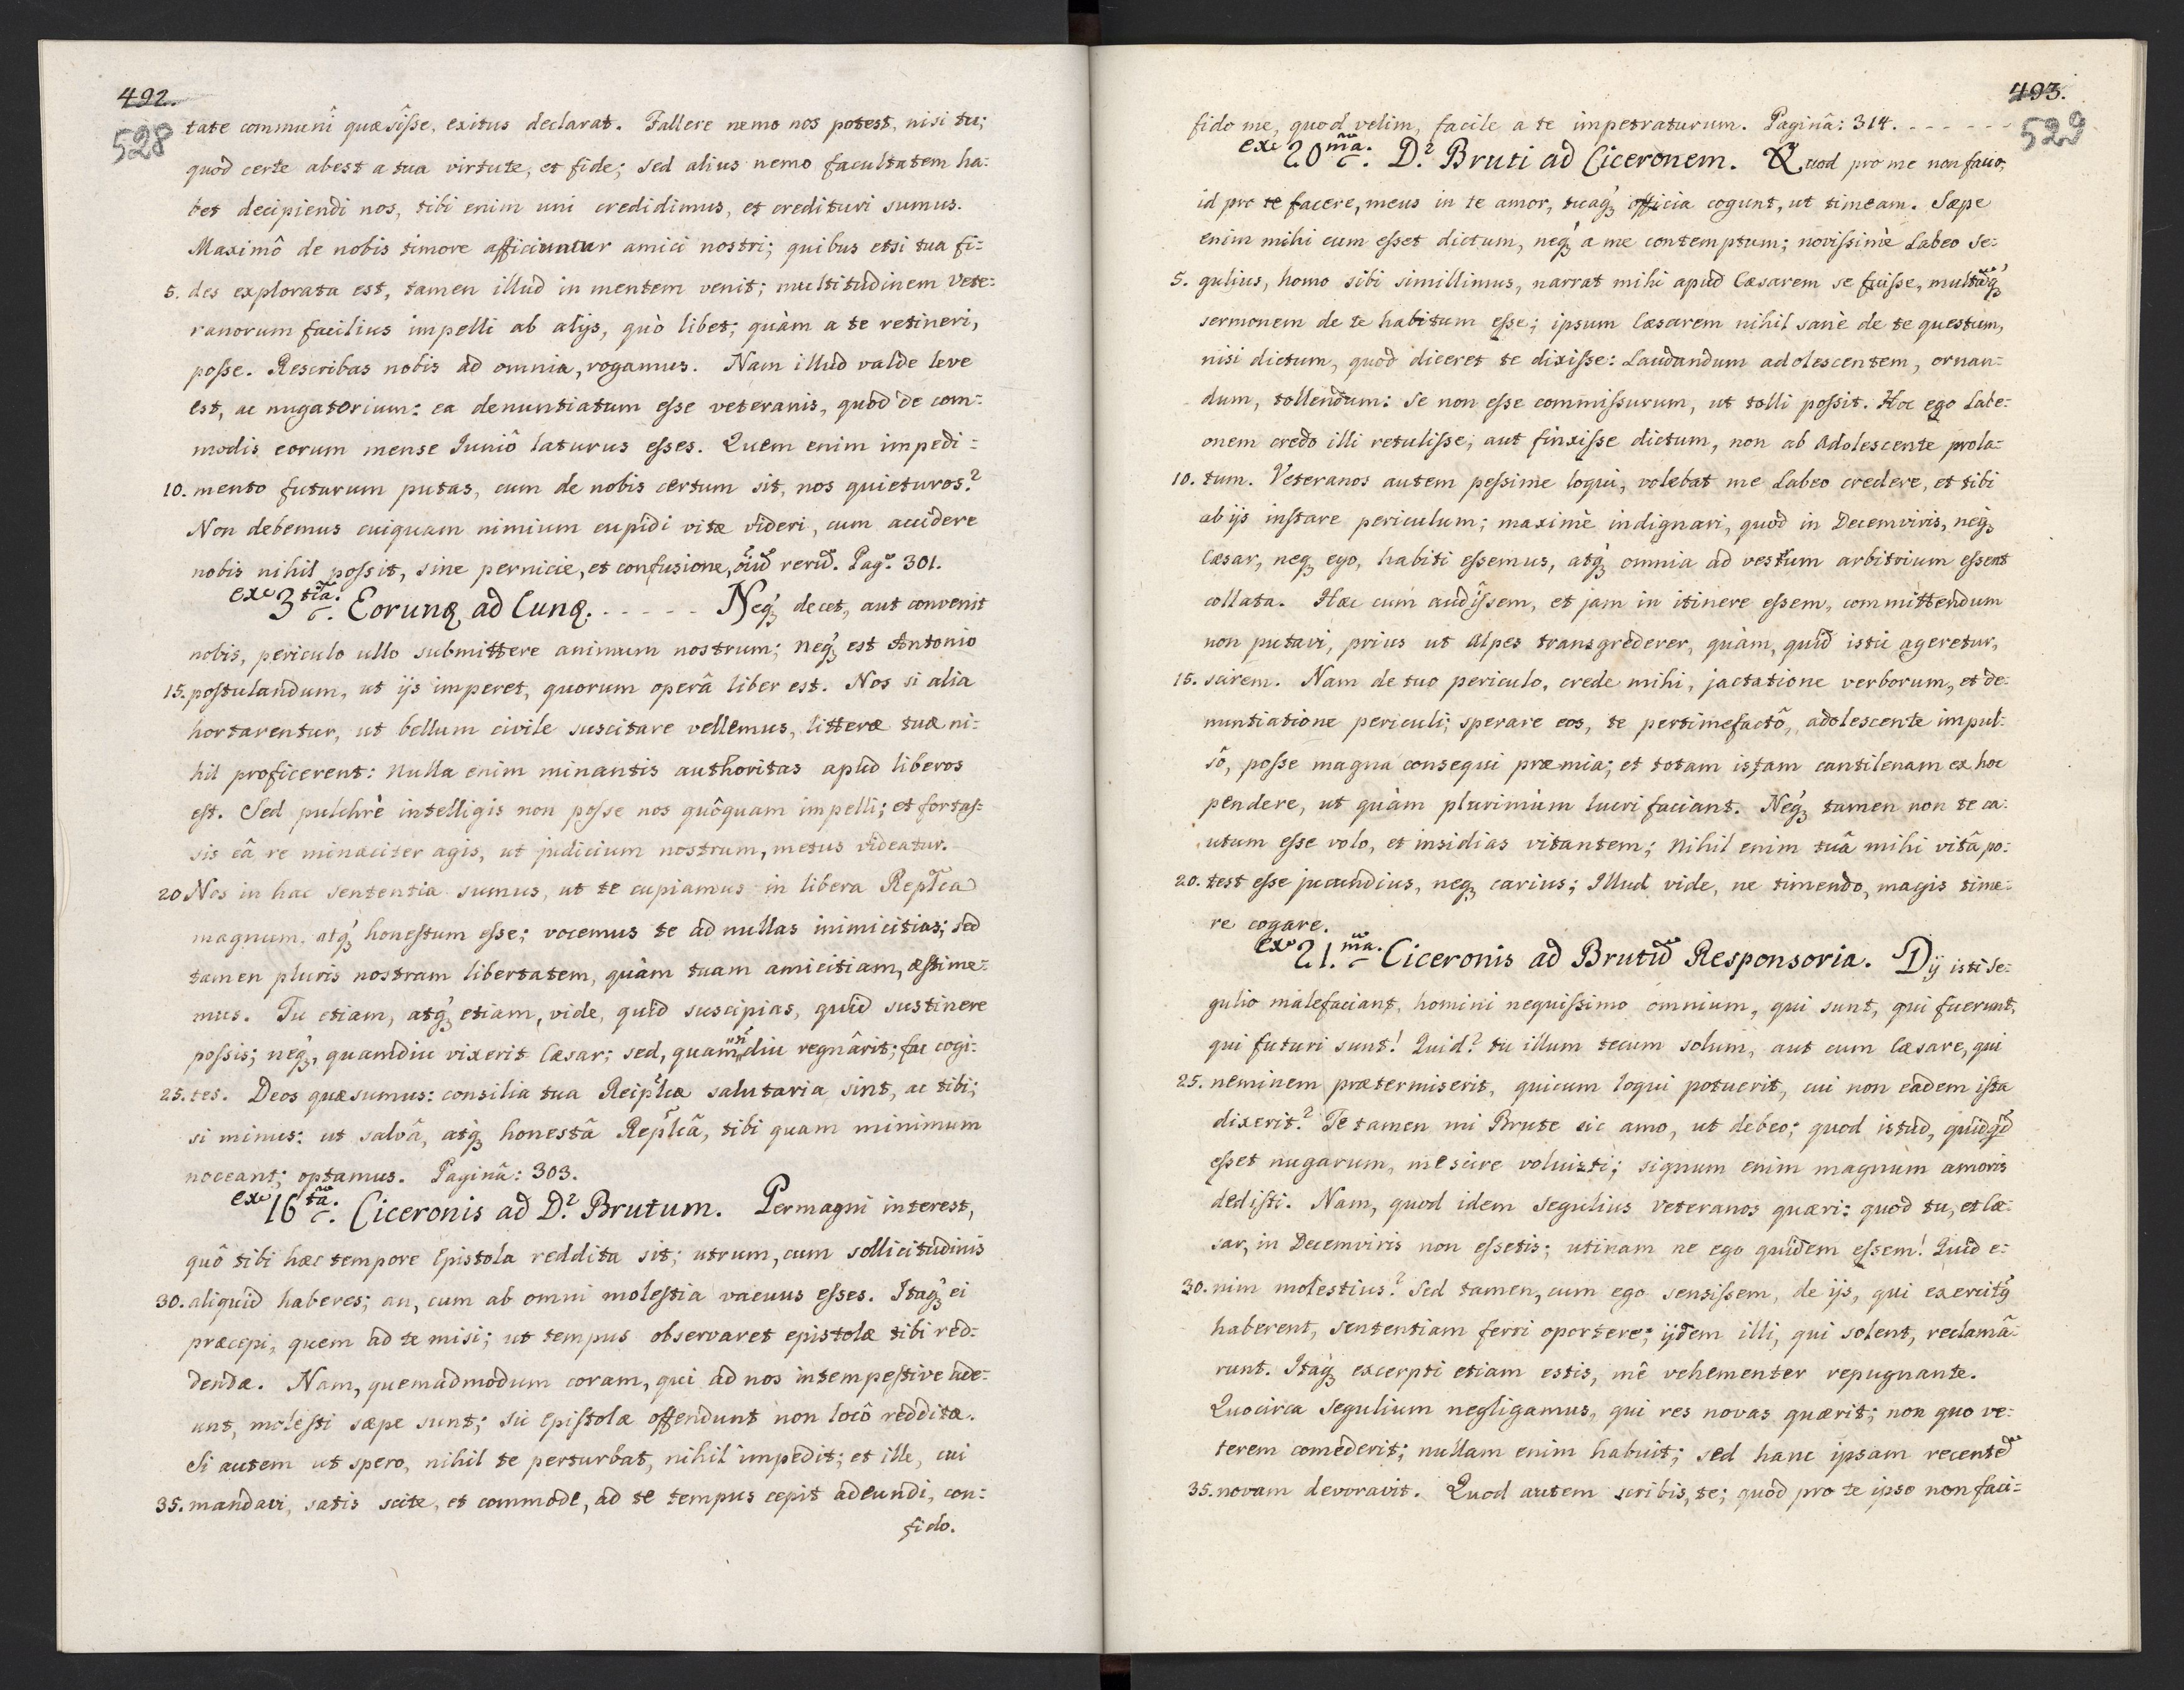 492.
528
tate communi quæsîsse, exitus declarat. Fallere nemo nos potest, nisi tu;
quòd certe abest a tua virtute, et fide; sed alius nemo facultatem ha:
bet decipiendi nos, tibi enim uni credidimus, et credituri sumus.
Maximô de nobis timore afficiuntur amici nostri; quibus etsi tua fi:
5. des explorata est, tamen illud in mentem venit; multitudinem Vete:
ranorum facilius impelli ab alijs, quò libet; quàm a te retineri,
posse. Rescribas nobis ad omnia, rogamus. Nam illud valde leve
est, ac nugatorium: ea denuntiatum esse veteranis, quòd de com:
modis eorum mense Juniô laturus esses. Quem enim impedi:
10. mento futurum putas, cum de nobis certum sit, nos quieturos?
Non debemus cuiquam nimium cupidi vitæ videri, cum accidere
nobis nihil possit, sine pernicie, et confusione, oiũ rerũ. Pag. 301.
ex 3tia. Eorunq ad Eunq. - - - - - Neq; decet, aut convenit
nobis, periculo ullo submittere animum nostrum; neq; est Antonio
15. postulandum, ut ijs imperet, quorum operâ liber est. Nos si alia
hortarentur, ut bellum civile suscitare vellemus, litteræ tuæ ni:
hil proficerent: nulla enim minantis authoritas apud liberos
est. Sed pulchrè intelligis non posse nos quôquam impelli; et fortas:
sis eâ re minaciter agis, ut judicium nostrum, metus videatur.
20 Nos in hac sententia sumus, ut te cupiamus in libera Rep̃lca
magnum, atq; honestum esse; vocemus te ad nullas inimicitias; sed
tamen pluris nostram libertatem, quàm tuam amicitiam, æstime:
mus. Tu etiam, atq; etiam, vide, quid suscipias, quid sustinere
possis; neq;, quamdiu vixerit Cæsar; sed, quamdiu regnârit; fac cogi:
25. tes. Deos quæsumus: consilia tua Reip̃lcæ salutaria sint, ac tibi;
si minus: ut salvâ, atq; honestâ Rep̃lcâ, tibi quam minimum
noceant; optamus. Paginâ: 303.
ex 16ta. Ciceronis ad D. Brutum. Permagni interest,
quô tibi hæc tempore Epistola reddita sit; utrum, cum sollicitudinis
30. aliquid haberes; an, cum ab omni molestia vacuus esses. Itaq; ei
præcepi, quem ad te misi; ut tempus observaret epistolæ tibi red:
dendæ. Nam, quemadmodum coram, qui ad nos intempestive ade:
unt, molesti sæpe sunt; sic Epistolæ offendunt non locô redditæ.
Si autem ut spero, nihil te perturbat, nihil impedit; et ille, cui
35. mandavi, satis scite, et commode, ad te tempus cepit adeundi, con:
fido.
493.
529
fido me, quod velim, facile a te impetraturum. Paginâ: 314. - - - - - -
ex 20ma. D. Bruti ad Ciceronem. Quod pro me non facio,
id pro te facere, meus in te amor, tuaq; officia cogunt, ut timeam. Sæpe
enim mihi cum esset dictum, neq; a me contemptum; novissimè Labeo Se:
5. gulius, homo sibi simillimus, narrat mihi apud Cæsarem se fuisse, multũq;
sermonem de te habitum esse; ipsum Cæsarem nihil sanè de te questum,
nisi dictum, quod diceret te dixisse: Laudandum adolescentem, ornan:
dum, tollendum: Se non esse commissurum, ut tolli possit. Hoc ego Labe:
onem credo illi retulisse; aut finxisse dictum, non ab Adolescente prola:
10. tum. Veteranos autem pessime loqui, volebat me Labeo credere, et tibi
ab ijs instare periculum; maximè indignari, quod in Decemviris, neq;
Cæsar, neq; ego, habiti essemus, atq; omnia ad vestrum arbitrium essent
collata. Hæc cum audîssem, et jam in itinere essem, committendum
non putavi, prius ut Alpes transgrederer, quàm, quid istic ageretur,
15. scirem. Nam de tuo periculo, crede mihi, jactatione verborum, et de:
nuntiatione periculi; sperare eos, te pertimefactô, adolescente impul:
sô, posse magna consequi præmia; et totam istam cantilenam ex hoc
pendere, ut quàm plurimùm lucri faciant. Neq; tamen non te ca:
utum esse volo, et insidias vitantem; nihil enim tuâ mihi vitâ po:
20. test esse jucundius, neq; carius; Illud vide, ne timendo, magis time:
re cogare.
ex 21.ma. Ciceronis ad Brutũ Responsoria. Dij isti Se:
gulio malefaciant, homini nequissimo omnium, qui sunt, qui fuerunt,
qui futuri sunt! Quid? tu illum tecum solum, aut cum Cæsare, qui
25. neminem prætermiserit, quicum loqui potuerit, cui non eadem ista
dixerit? Te tamen mi Brute sic amo, ut debeo; quod istud, quidq̃d
esset nugarum, me scire voluisti; signum enim magnum amoris
dedisti. Nam, quod idem Segulius Veteranos quæri: quod tu, et Cæ:
sar, in Decemviris non essetis; utinam ne ego quidem essem! Quid e:
30. nim molestius? Sed tamen, cum ego sensissem, de ijs, qui exercitq
haberent, sententiam ferri oportere; ijdem illi, qui solent, reclamâ:
runt. Itaq; excerpti etiam estis, mê vehementer repugnante.
Quocirca Segulium negligamus, qui res novas quærit; non quo ve:
terem comederit; nullam enim habuit; sed hanc ipsam recentẽ
35. novam devoravit. Quod autem scribis, te; quòd pro te ipso non faci: